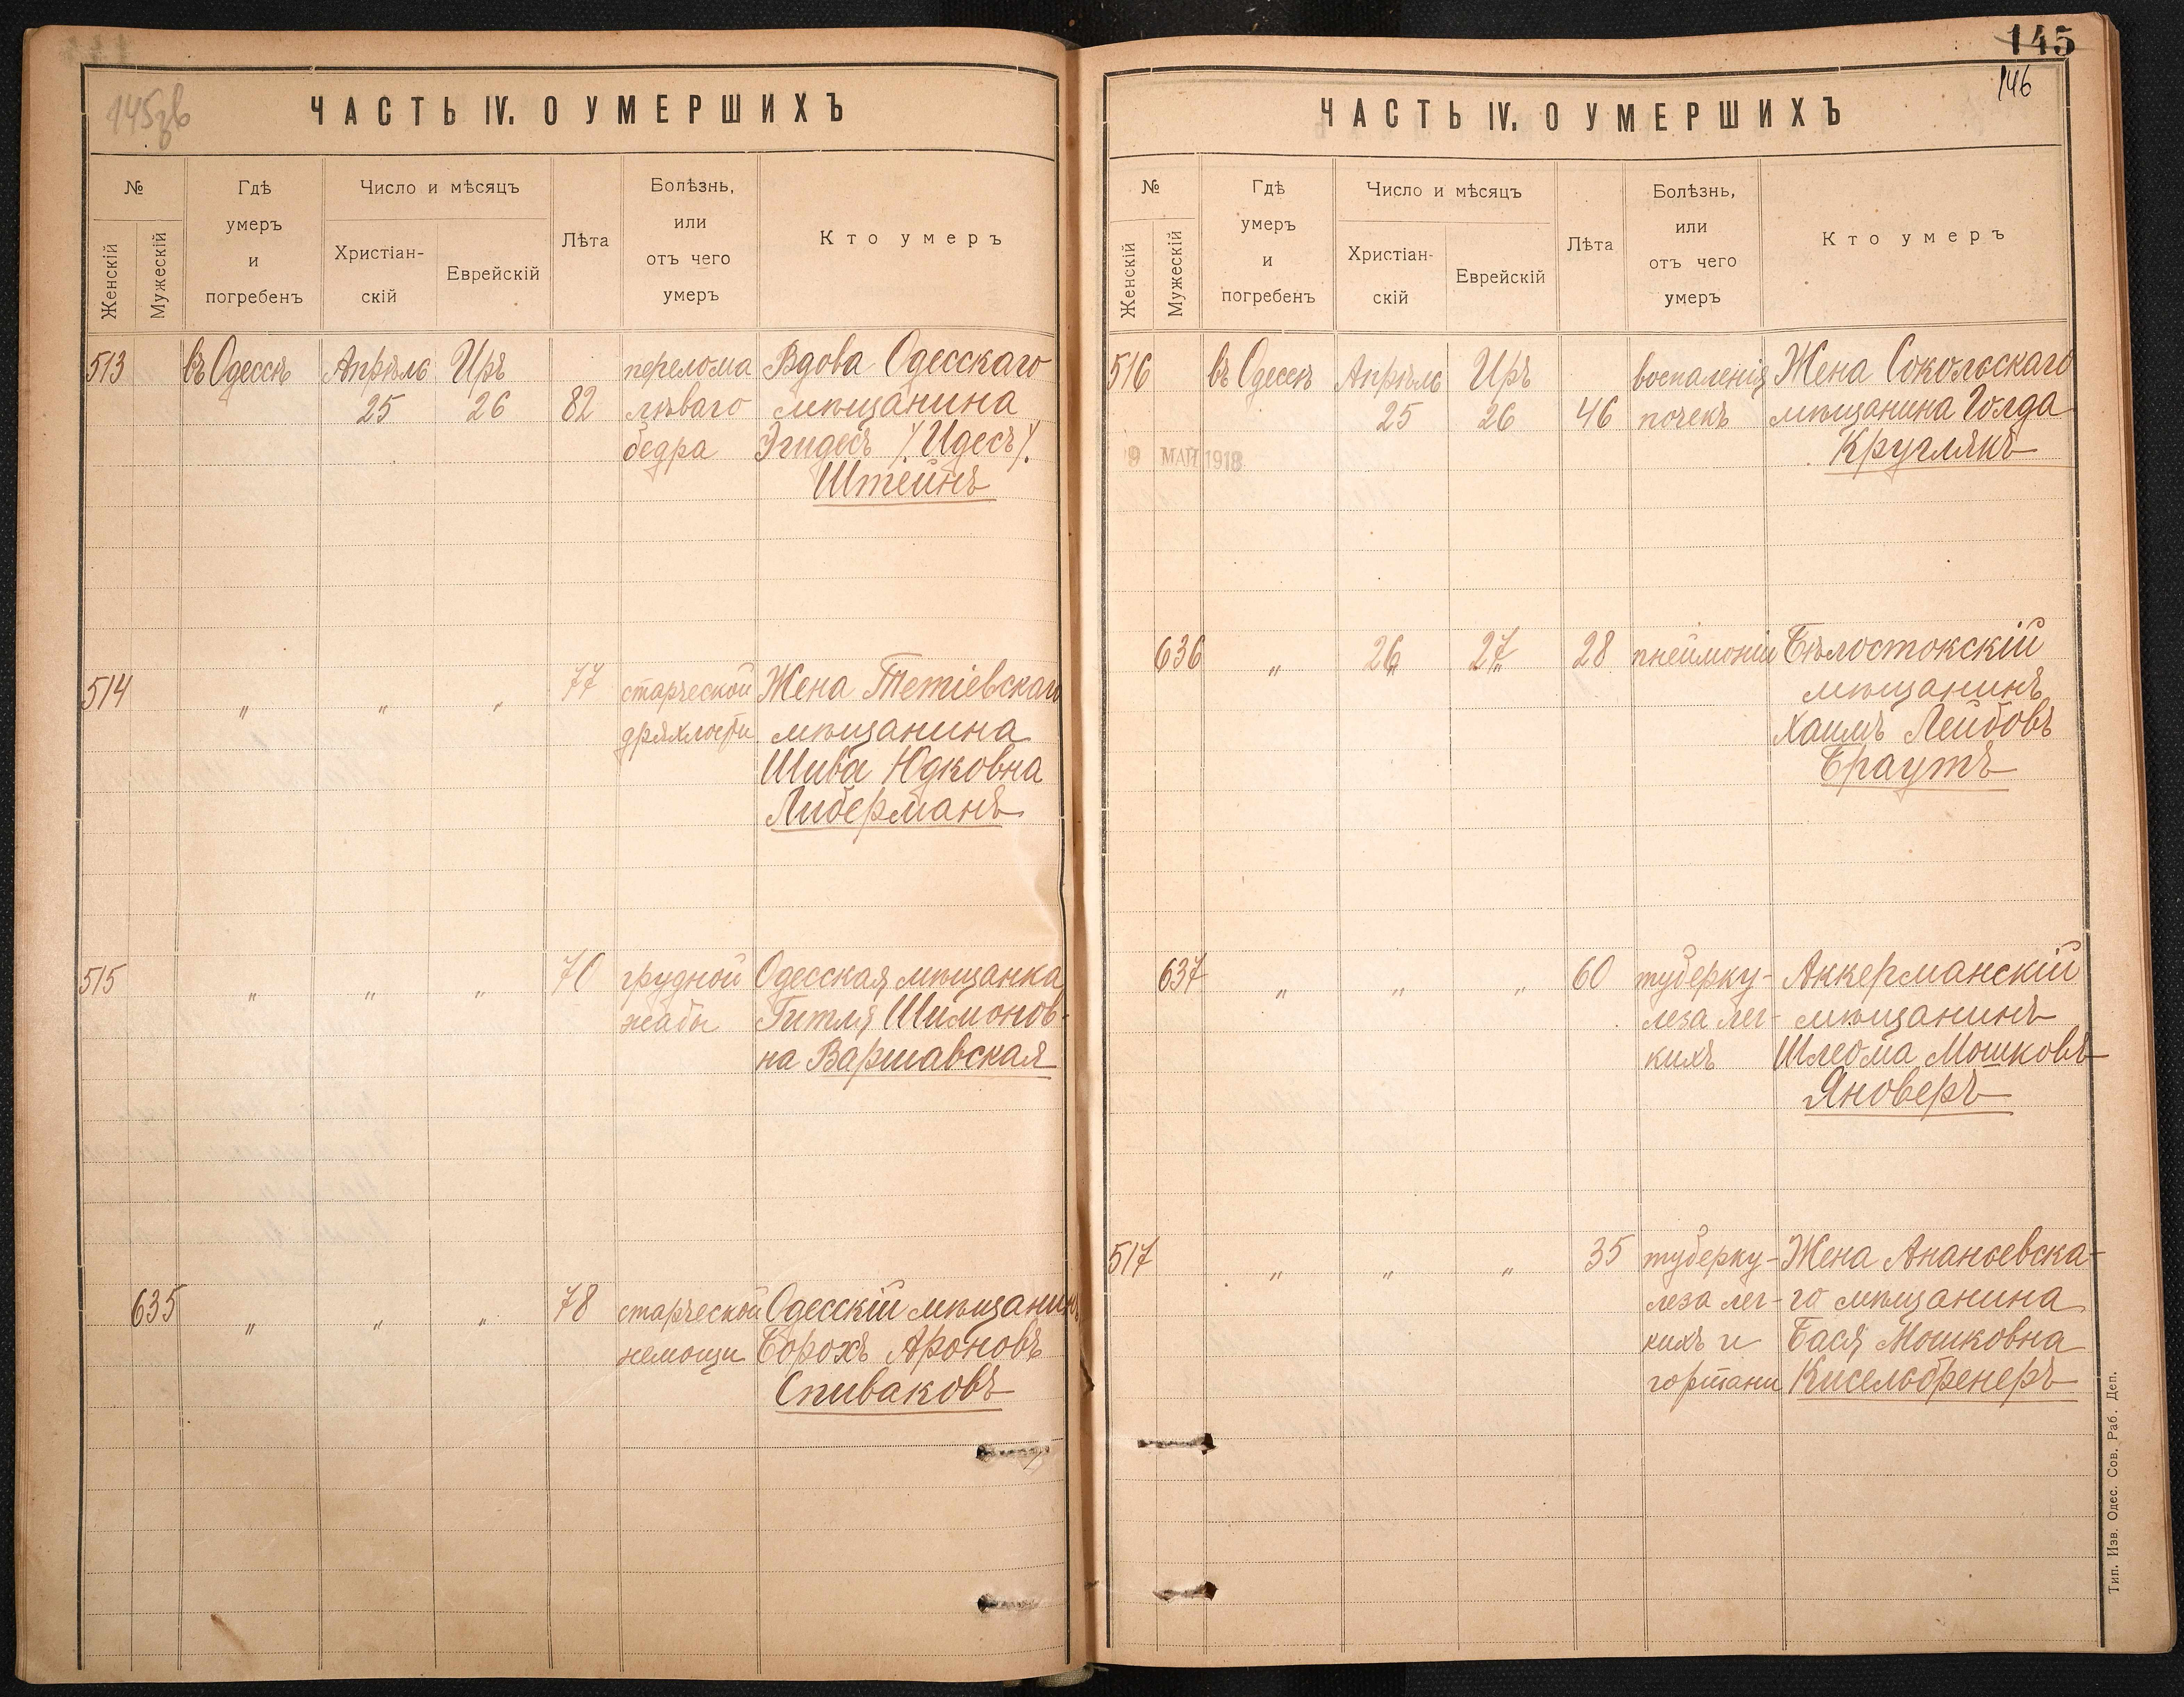 145зв
ЧАСТЬ IV. О УМЕРШИХЪ
№
Женскій
Мужескій
Гдѣ
умеръ
и
погребенъ
Число и мѣсяцъ
Христіан-
скій
Еврейскій
Лѣта
Болѣзнь,
или
отъ чего
умеръ
Кто умеръ
513 въ Одессѣ Апрѣль Иръ перелома Вдова Одесскаго
25 26 82 лѣваго мѣщанина
бедра Эгидесъ /Идесъ/.
Штейнъ
514 " " " 77 старческой Жена Тетіевскаго
дряхлости мѣщанина
Шива Юдковна
Либерманъ
515 " " " 70 грудной Одесская мѣщанка
жабы Гитля Шимонов-
на Варшавская
635 " " " 78 старческой Одесскій мѣщанинъ
немощи Борохъ Ароновъ
Спиваковъ
145
146
ЧАСТЬ IV. О УМЕРШИХЪ
№
Женскій
Мужескій
Гдѣ
умеръ
и
погребенъ
Число и мѣсяцъ
Христіан-
скій
Еврейскій
Лѣта
Болѣзнь,
или
отъ чего
умеръ
Кто умеръ
516 въ Одессѣ Апрѣль Иръ воспаленія Жена Сокольскаго
25 26 46 почекъ мѣщанина Голда
Круглякъ
9 МАЙ 1918
636 " 26 27 28 пнеймоніи Бѣлостокскій
мѣщанинъ
Хаимъ Лейбовъ
Браутъ
637 " " " 60 туберку- Аккерманскій
леза лег- мѣщанинъ
кихъ Шлеома Мошковъ
Яноверъ
517 " " " 35 туберку- Жена Ананьевска-
леза лег- го мѣщанина
кихъ и Бася Мошковна
гортани Кисельбренеръ
Тип. Изв. Одес. Сов. Раб. Деп.